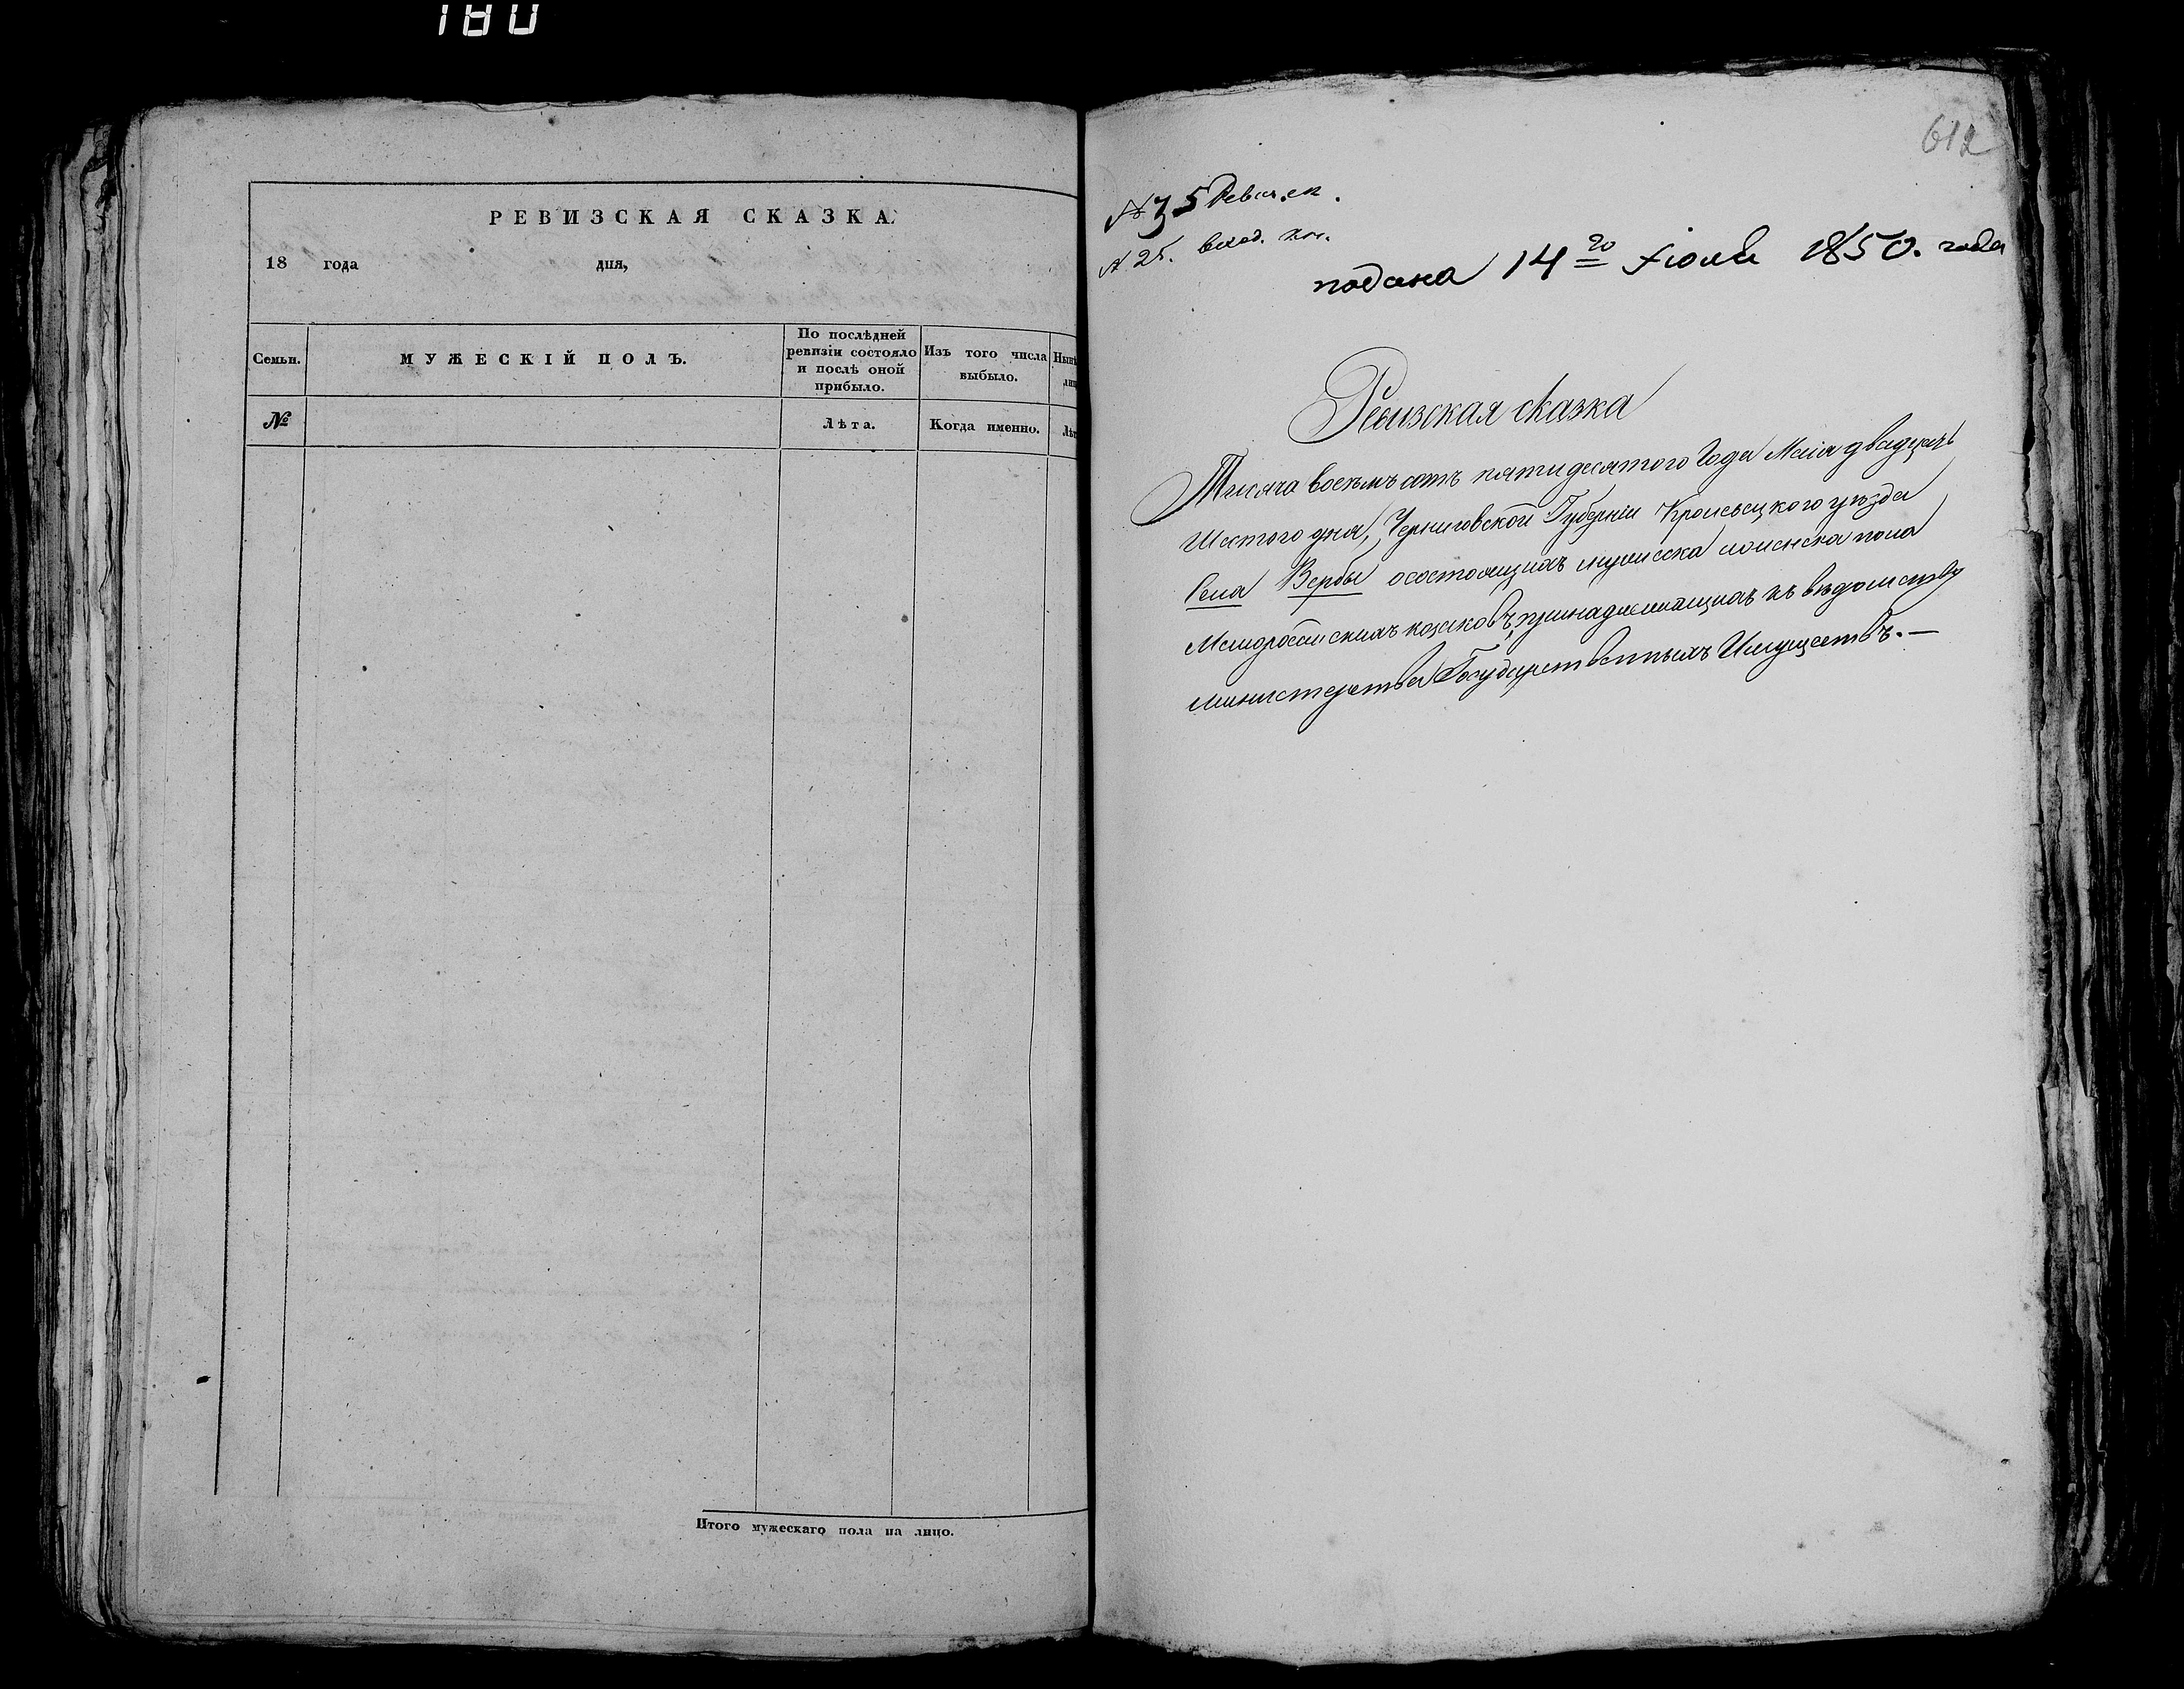 180
РЕВИЗСКАЯ СКАЗКА.
18 года дня,
Семьи.
МУЖЕСКІЙ ПОЛЪ.
По послѣдней ревизіи состояло и послѣ оной прибыло.
Изъ того числа выбыло.
№
Лѣта.
Когда именно.
Итого мужескаго пола на лицо.
612
№ 35
№ 25. вход.
подана 14го Іюля 1850. года
Ревизская сказка
Тысяча восемьсотъ пятидесятого Года Маія двадцать
Шестого дня, Черниговской Губерніи Кролевецкого уѣзда
Села Вербы о состоящихъ мужеска и женска пола
Малороссійскихъ козаковъ, принадлежащихъ къ вѣдомству
министерства Государственныхъ Имуществъ.—